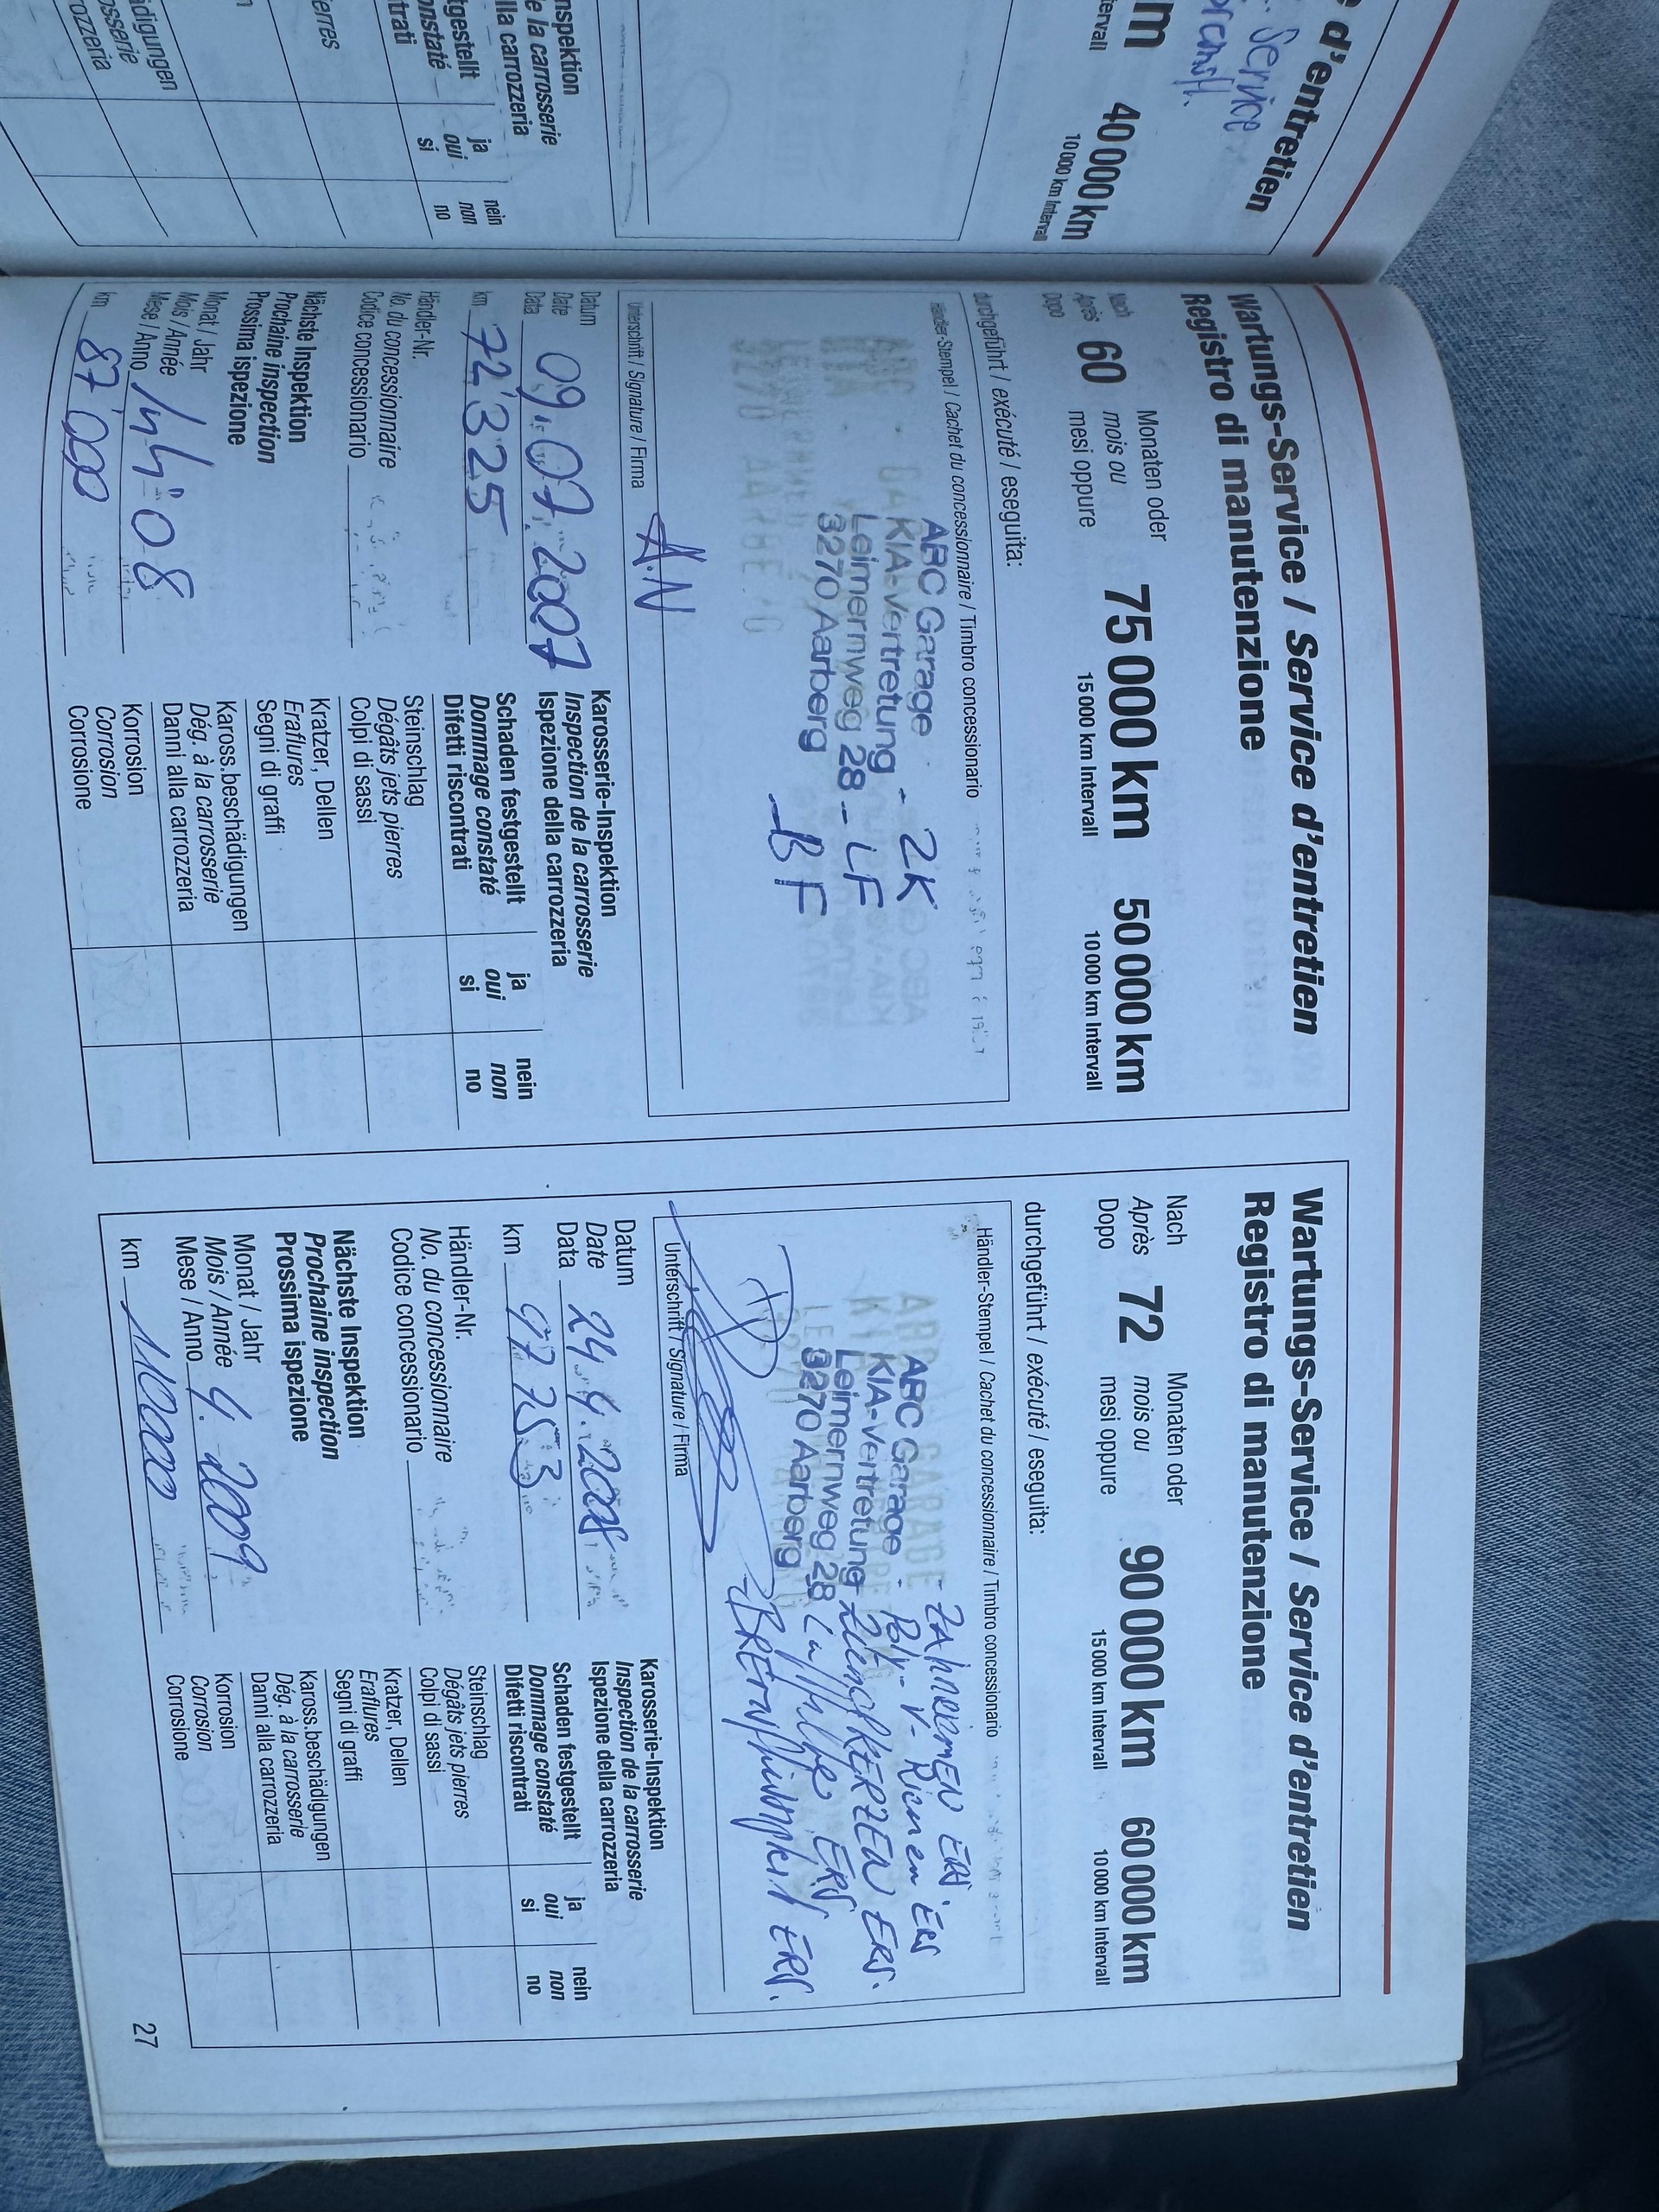 e d'entretien
Service
m 40 000 km
tervall 10 000 km Intervall
nspektion
e la carrosserie
lla carrozzeria
tgestellt ja nein
onstaté oui non
trati si no
erres
ädigungen
osserie
rozzeria
Wartungs-Service / Service d'entretien
Registro di manutenzione
Nach Monaten oder
Après 60 mois ou 75 000 km 50 000 km
Dopo mesi oppure 15 000 km Intervall 10 000 km Intervall
durchgeführt / exécuté / eseguita:
Händler-Stempel / Cachet du concessionnaire / Timbro concessionario
ABC Garage - ZK
KIA-Vertretung
Leimernweg 28 - LF
3270 Aarberg - BF
A.N
Unterschrift / Signature / Firma
Datum
Date
Data 09.07.2007
km 72'325
Händler-Nr.
No. du concessionnaire
Codice concessionario
Nächste Inspektion
Prochaine inspection
Prossima ispezione
Monat / Jahr
Mois / Année
Mese / Anno 08
km 87'000
Karosserie-Inspektion
Inspection de la carrosserie
Ispezione della carrozzeria
Schaden festgestellt ja nein
Dommage constaté oui non
Difetti riscontrati si no
Steinschlag
Dégâts jets pierres
Colpi di sassi
Kratzer, Dellen
Eraflures
Segni di graffi
Kaross.beschädigungen
Dég. à la carrosserie
Danni alla carrozzeria
Korrosion
Corrosion
Corrosione
Wartungs-Service / Service d'entretien
Registro di manutenzione
Nach Monaten oder
Après 72 mois ou 90 000 km 60 000 km
Dopo mesi oppure 15 000 km Intervall 10 000 km Intervall
durchgeführt / exécuté / eseguita:
Händler-Stempel / Cachet du concessionnaire / Timbro concessionario
ABC Garage - ZAHNRIEMEN ERS.
KIA-Vertretung - Poly-V-Riemen ERS
Leimernweg 28 - ZÜNDKERZEN ERS.
3270 Aarberg Luftfilter ERS
ERS.
Unterschrift / Signature / Firma
Datum
Date
Data 24.4.2008
km 97753
Händler-Nr.
No. du concessionnaire
Codice concessionario
Nächste Inspektion
Prochaine inspection
Prossima ispezione
Monat / Jahr
Mois / Année
Mese / Anno 4.2009
km 110000
Karosserie-Inspektion
Inspection de la carrosserie
Ispezione della carrozzeria
Schaden festgestellt ja nein
Dommage constaté oui non
Difetti riscontrati si no
Steinschlag
Dégâts jets pierres
Colpi di sassi
Kratzer, Dellen
Eraflures
Segni di graffi
Kaross.beschädigungen
Dég. à la carrosserie
Danni alla carrozzeria
Korrosion
Corrosion
Corrosione
27